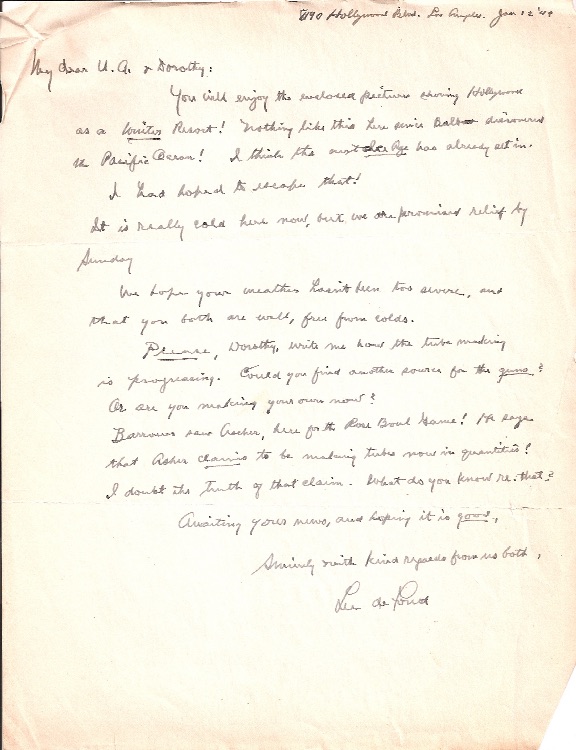 8190 Hollywood Blvd. Los Angeles. Jan 12 '49
My dear U. A. & Dorothy:
You will enjoy the enclosed picture showing Hollywood
as a Winter Resort! Nothing like this here since Balboa discovered
the Pacific Ocean! I think the next Ice Age has already set in.
I had hoped to escape that!
It is really cold here now, but we are promised relief by
Sunday
We hope your weather hasn't been too severe, and
that you both are well, free from colds.
Please, Dorothy, write me how the tube making
is progressing. Could you find another source for the guns?
Or are you making your own now?
Barrows saw Ascher, here for the Rose Bowl Game! He says
that Asher claims to be making tubes now in quantities!
I doubt the truth of that claim. What do you know re. that?
Awaiting your news, and hoping it is good,
Sincerely with kind regards from us both,
Lee de Forest